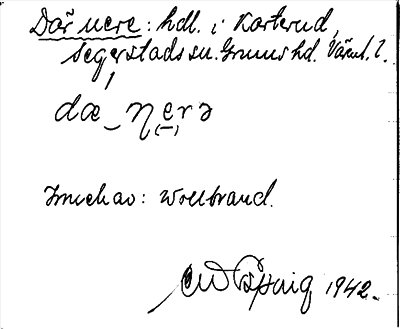 Där nere: hdl. i Karterud,
Segerstads sn. Grums hd. Värml. l.
dæ ̮ nerə
Innehav: Wollbrand.
1942.